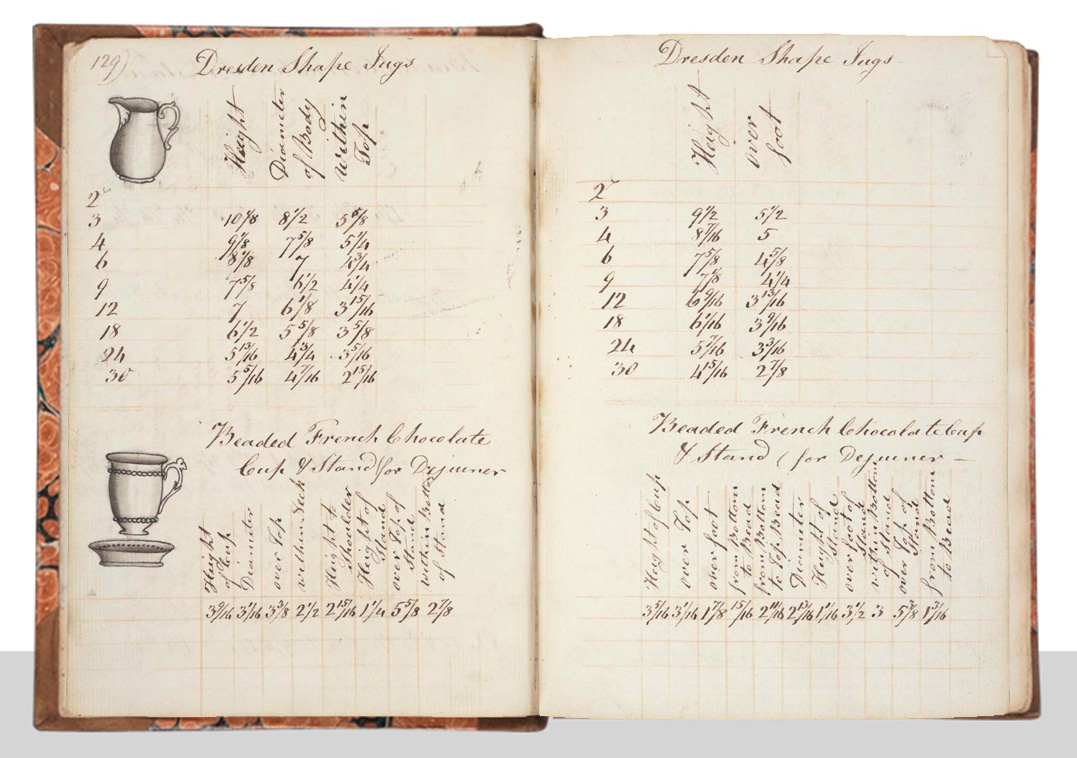 129)
Dresden Shape Jugs
Height
Diameter of Body
within Top
2
3 10 1/8 8 1/2 5 5/8
4 9 1/8 7 5/8 5 1/4
6 8 1/8 7 4 3/4
9 7 5/8 6 1/2 4 1/4
12 7 6 1/8 3 15/16
18 6 1/2 5 5/8 3 5/8
24 5 13/16 4 3/4 3 5/16
30 5 5/16 4 7/16 2 15/16
Beaded French Chocolate
Cup & Stand (for Dejeuner
Height of Cup
Diameter
over Top
within Neck
Height to Shoulder
Height of Stand
over Top of Stand
within Bottom of Stand
3 9/16 3 1/16 3 3/8 2 1/2 2 15/16 1 1/4 5 5/8 2 7/8
Dresden Shape Jugs
Height
over foot
2
3 9 1/2 5 1/2
4 8 7/16 5
6 7 5/8 4 5/8
9 7 1/8 4 1/4
12 6 9/16 3 13/16
18 6 1/16 3 9/16
24 5 7/16 3 3/16
30 4 15/16 2 7/8
Beaded French Chocolate Cup
& Stand (for Dejeuner —
Height of Cup
over Top
over foot
from Bottom to Bead
from Bottom to Top Bead
Diameter
Height of Stand
over foot of Stand
within Bottom of Stand
over Top of Stand
from Bottom to Bead
3 5/16 3 1/16 1 7/8 15/16 2 11/16 2 13/16 1 1/16 3 1/2 3 5 3/8 1 3/16